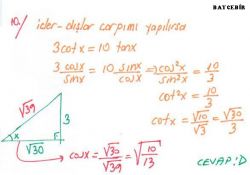 BATCEBİR
10./ içler-dışlar çarpımı yapılırsa
3cotx = 10 tanx
3 cosx/sinx = 10 sinx/cosx ⇒ cos²x/sin²x = 10/3
cot²x = 10/3
cotx = √10/√3 = √30/3
√39
3
x
√30
cosx = √30/√39 = √(10/13)
CEVAP: D